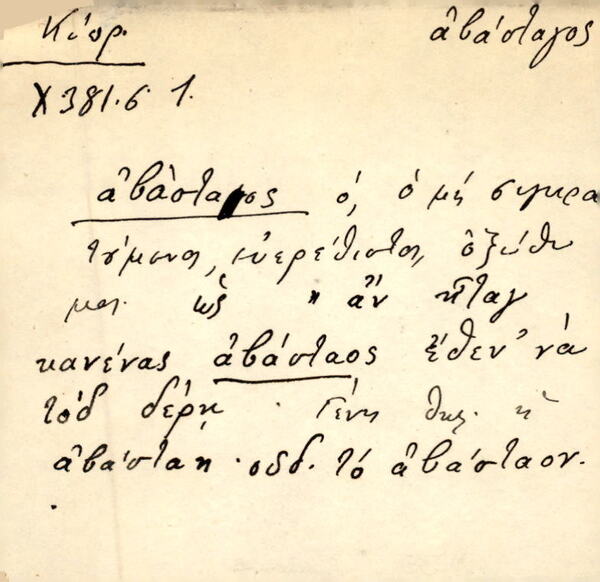 Κύθρ. ἀβάσταγος
Χ 381.6 1.
ἀβάσταος ὁ, ὁ μὴ συγκρα
τούμενος, εὐερέθιστος, ὀξύθυ
μος. ὡς " ἂν ἦταν
κανένας ἀβάσταος ἔθεν' νὰ
τὸν δέρῃ. Γένη θηλ. ἡ
ἀβάσταη. οὐδ. τὸ ἀβάσταον.